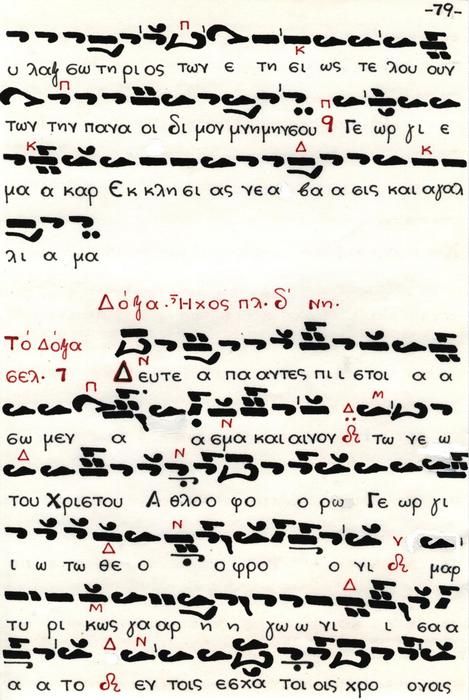 -79-
υ λαξ σω τη ρι ος των ε τη σι ως τε λου ουν
των την πανα οι δι μον μνημησου Γε ωρ γι ε
μα α καρ Εκ κλη σι ας νε α βα α σις και αγαλ
λι α μα
Δόξα. Ἦχος πλ. δ´ Νη.
Τό Δόξα
σελ. 7 Δευτε α πα αντες πι ι στοι α α
σω μεν α α σμα και αινον τω νε ω
του Χριστου Α θλο ο φο ο ρω Γε ωρ γι
ι ω τω θε ο ο φρο ο νι μαρ
τυ ρι κως γα αρ η η γω ω νι ι σα α
α α το εν τοις εσχα τοι οις χρο ονοις